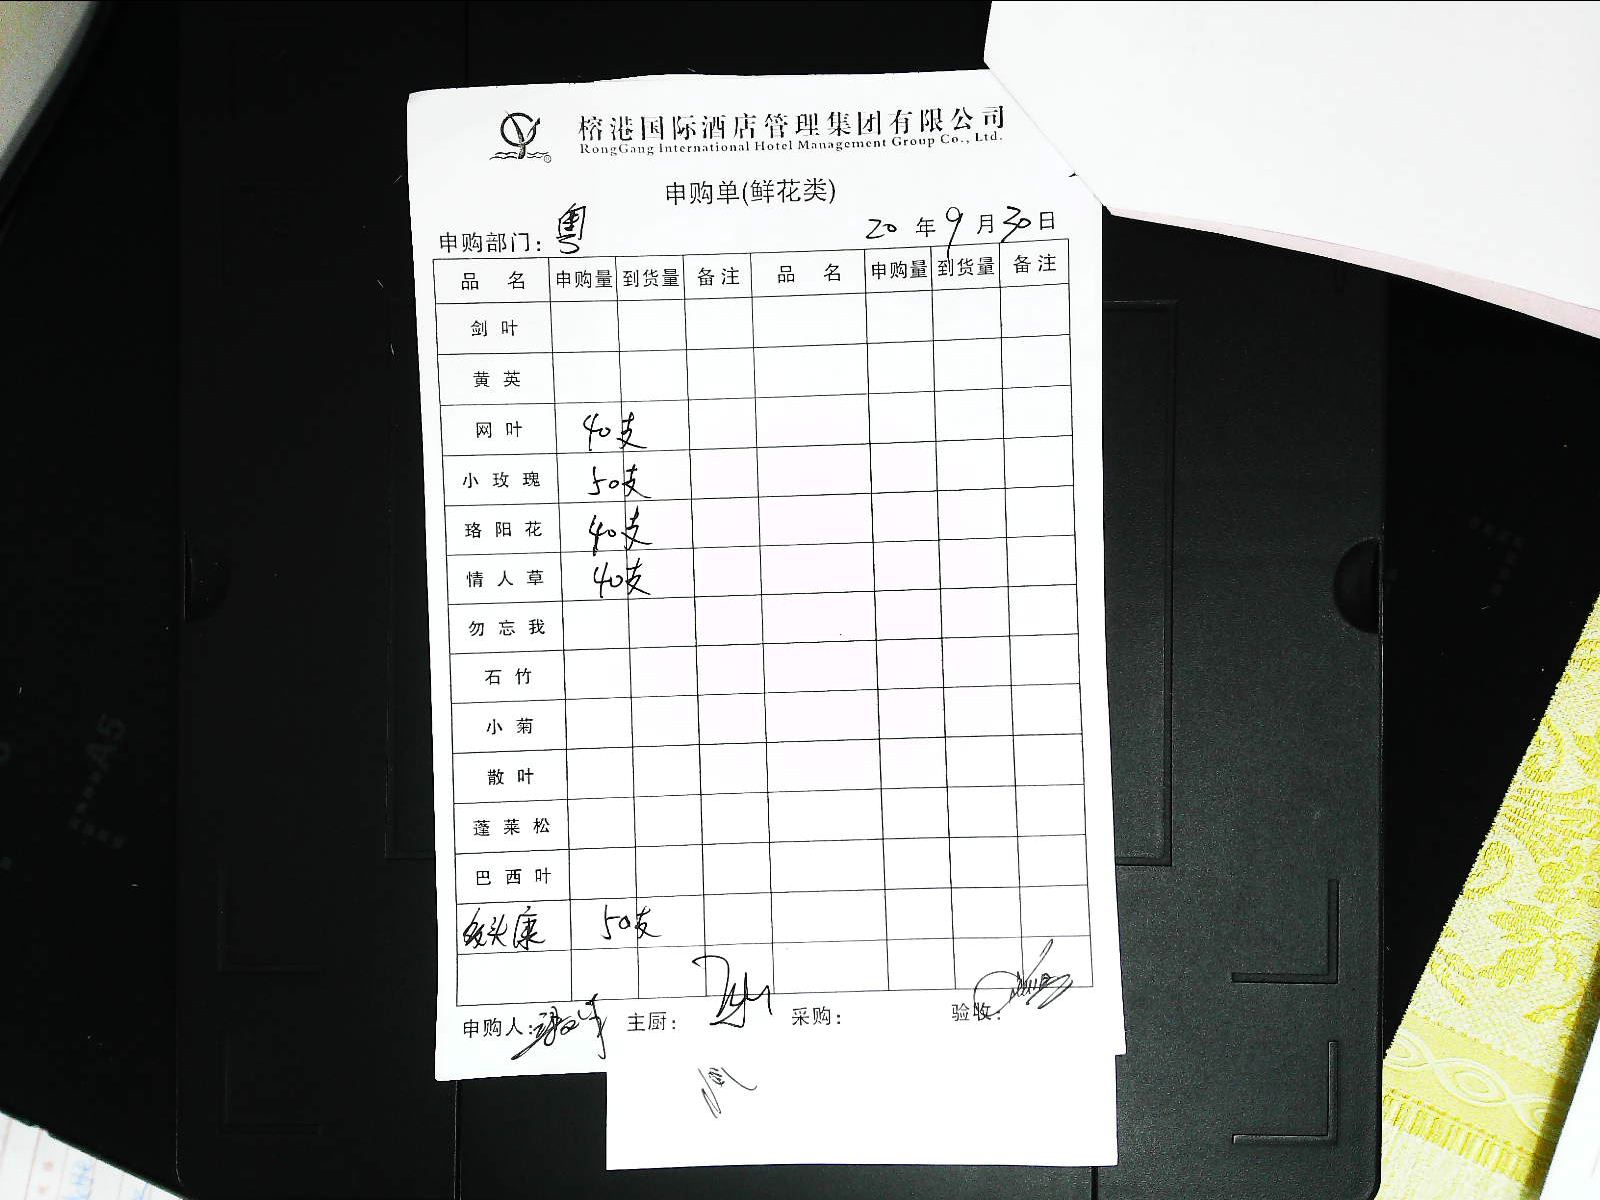 榕港国际酒店管理集团有限公司
RongGang International Hotel Management Group Co., Ltd.
申购单(鲜花类)
申购部门：粤 20 年 9 月 30 日
品 名 申购量 到货量 备注 品 名 申购量 到货量 备注
剑叶
黄英
网叶 40支
小玫瑰 50支
珞阳花 40支
情人草 40支
勿忘我
石竹
小菊
散叶
蓬莱松
巴西叶
多头康 50支
申购人: 主厨: 采购: 验收:
A5